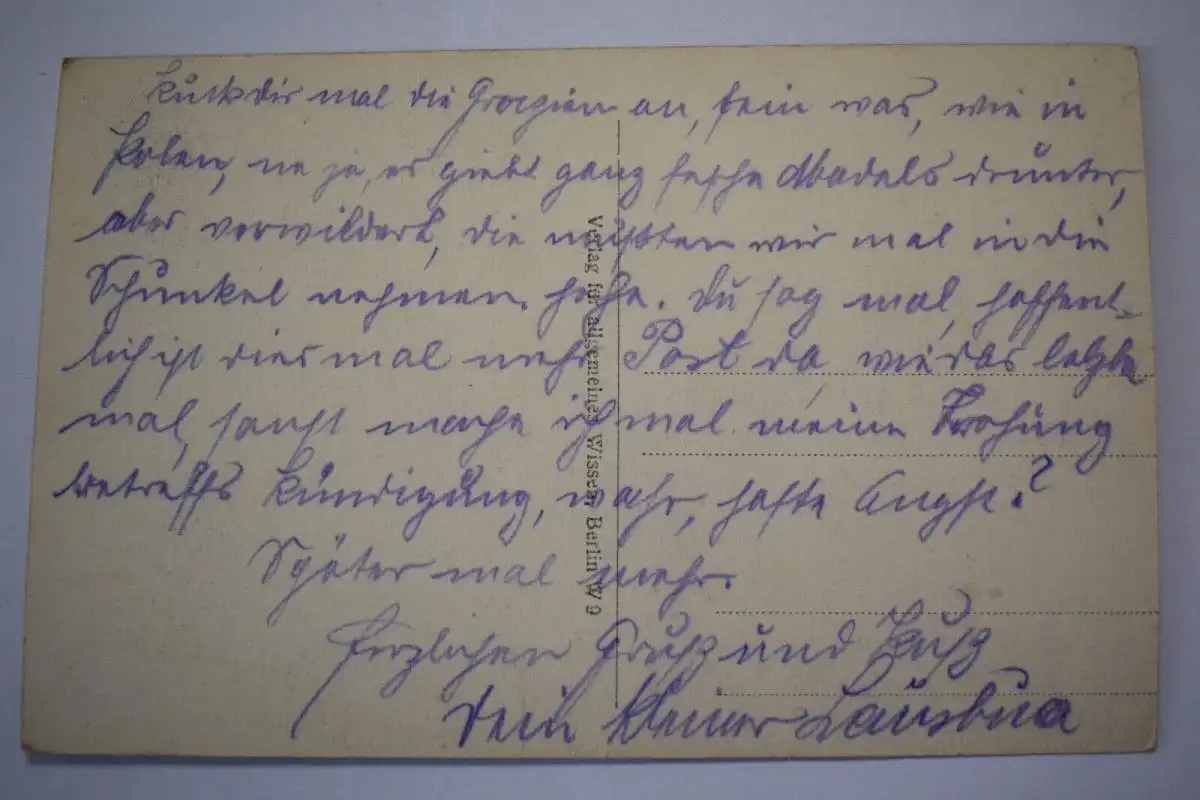 Kuck dir mal die Grazien an, fein was, wie in
Polen, na ja, es giebt ganz fesche Madels drunter,
aber verwildert, die müßten wir mal in die
Schunkel nehmen, hehe. Du sag mal, hoffent-
lich ist diesmal mehr Post da wie das letzte
mal, sonst mache ich mal meine Drohung
betreffs Kündigung, wahr, haste Angst?
Später mal mehr.
Herzlichen Gruß und Kuß
Dein kleiner Lausbua
Verlag für allgemeines Wissen Berlin W 9